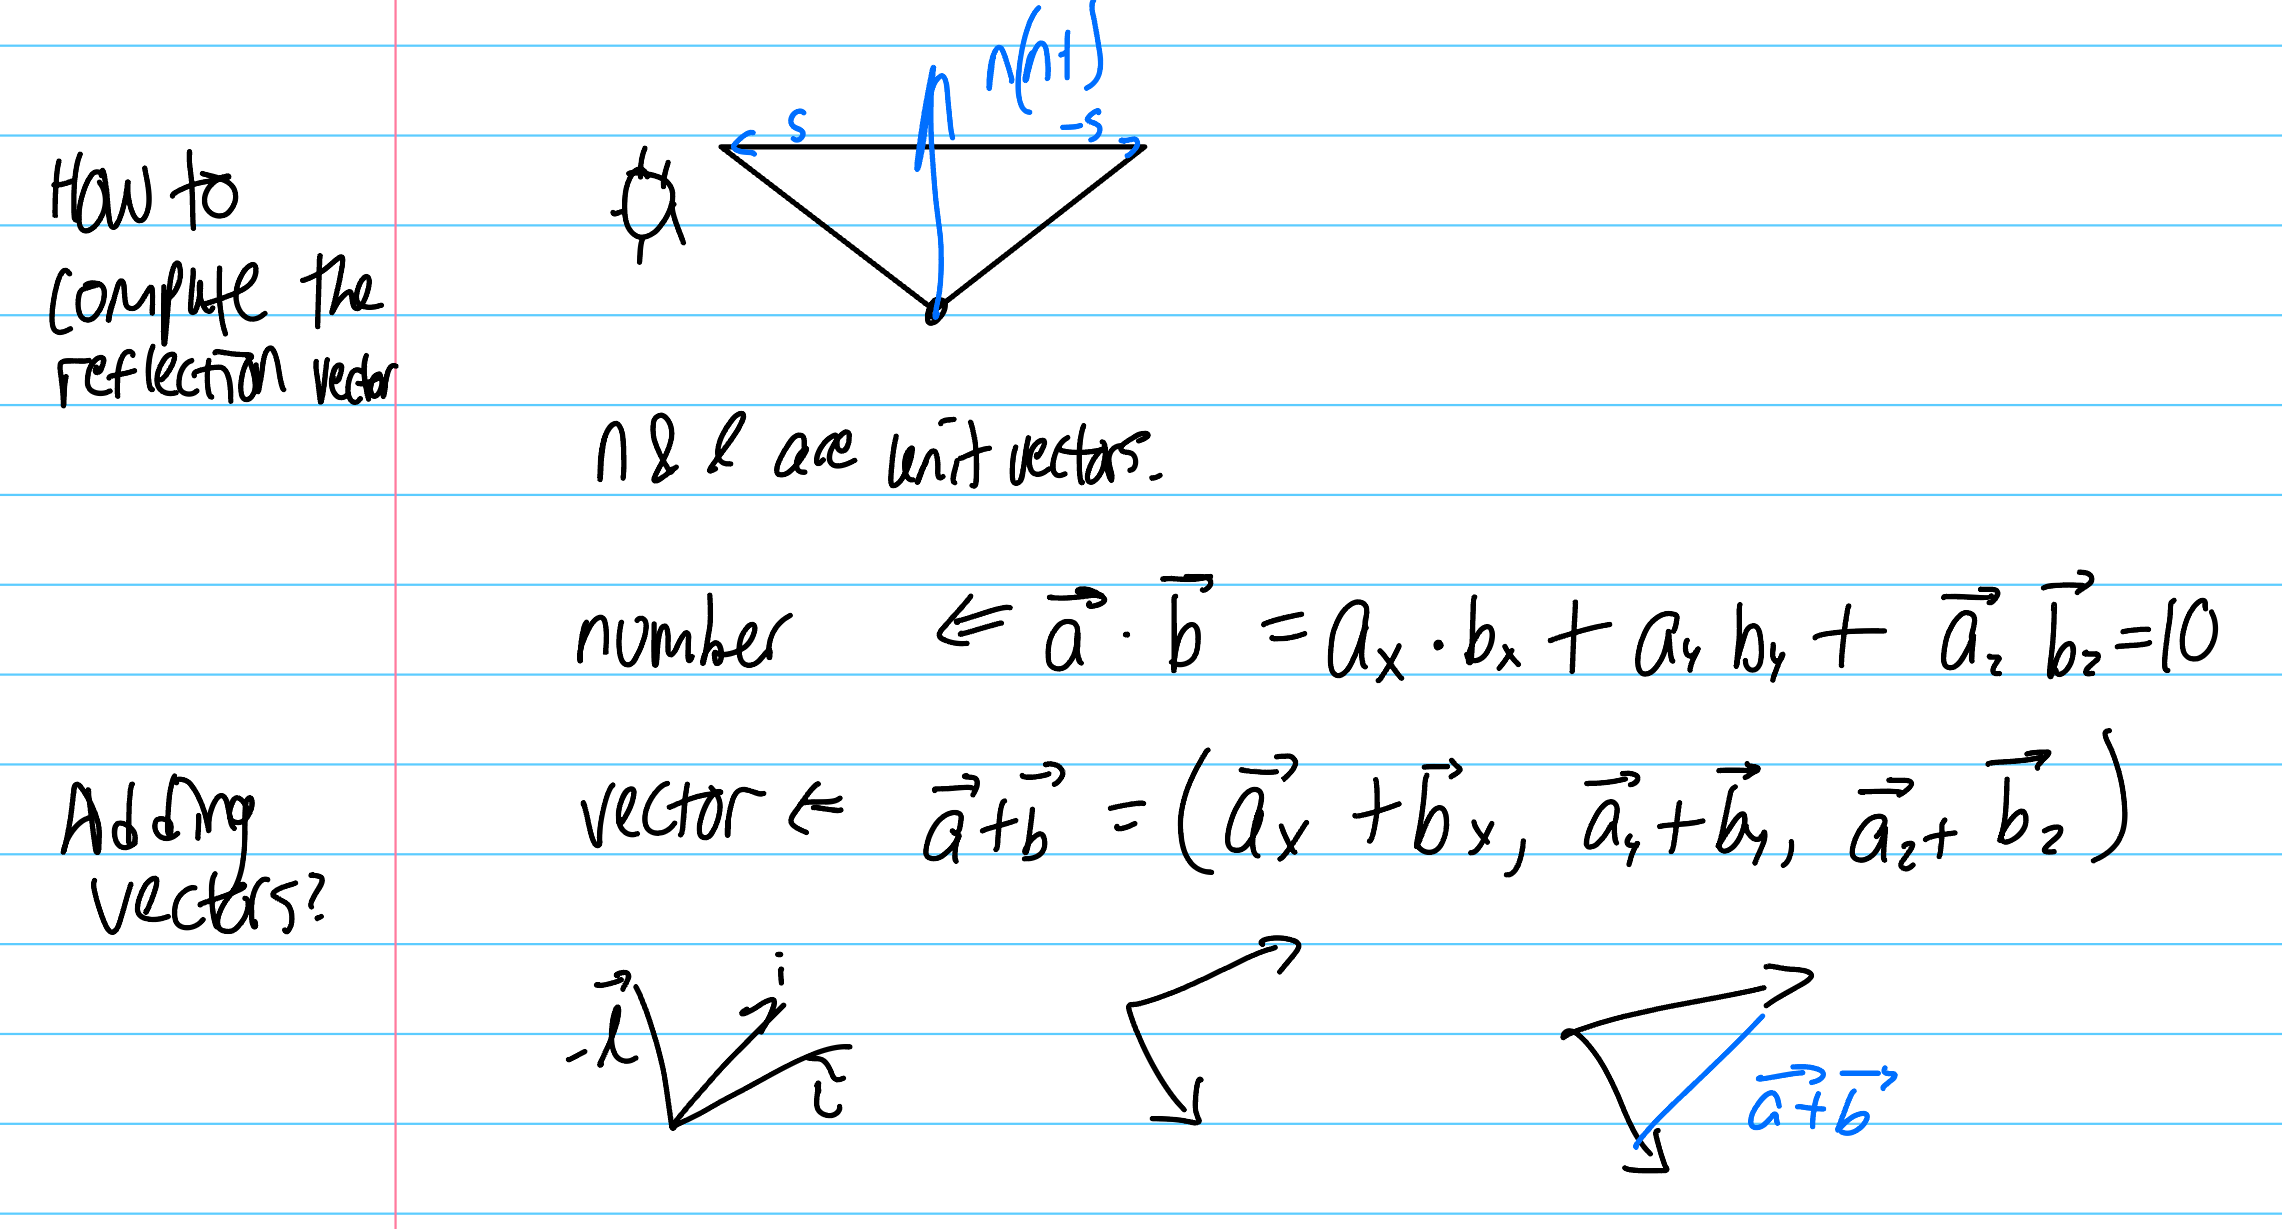 n(n+)
s
-s
How to
compute the
reflection vector
n & l are unit vectors.
number ⇐ a⃗ · b⃗ = aₓ · bₓ + a_y b_y + a⃗_z b⃗_z = 10
Adding
vectors?
vector ⇐ a⃗ + b⃗ = (a⃗ₓ + b⃗ₓ, a⃗_y + b⃗_y, a⃗_z + b⃗_z)
-l⃗
i
a⃗ + b⃗